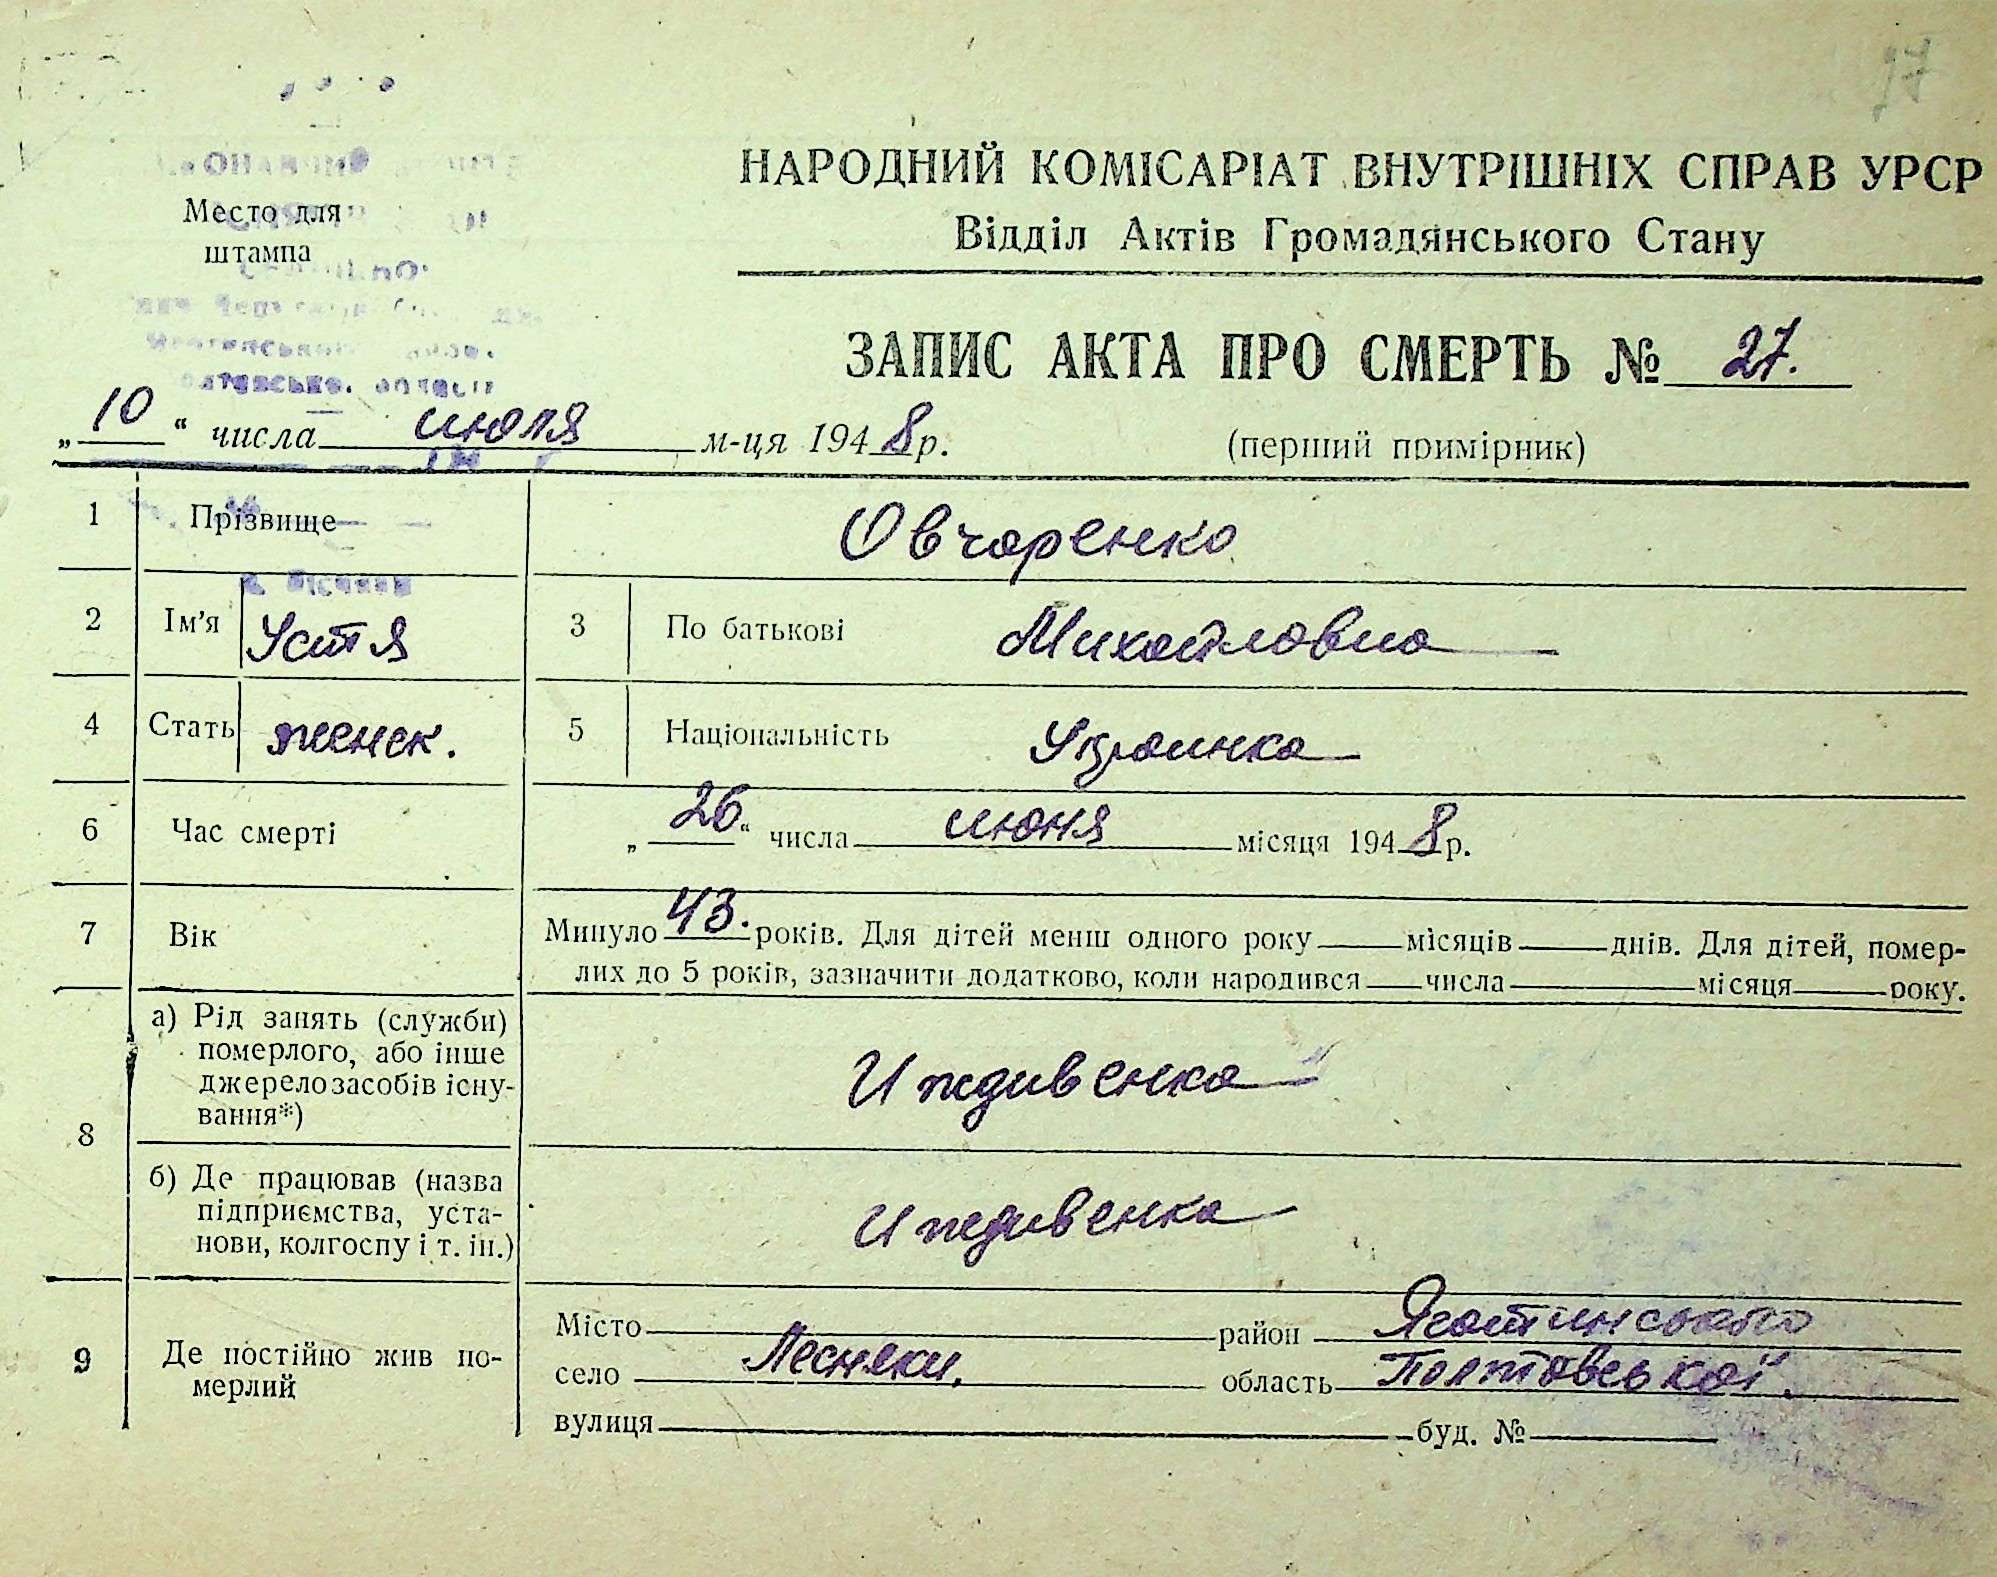 97
НАРОДНИЙ КОМІСАРІАТ ВНУТРІШНІХ СПРАВ УРСР
Відділ Актів Громадянського Стану
Место для
штампа
ЗАПИС АКТА ПРО СМЕРТЬ № 27.
„10“ числа июля м-ця 1948р.
(перший примірник)
1 Прізвище Овчаренко
2 Ім'я Устя 3 По батькові Михайловна
4 Стать женск. 5 Національність Украинка
6 Час смерті „26.“ числа июня місяця 1948р.
7 Вік Минуло 43. років. Для дітей менш одного року місяців днів. Для дітей, помер-
лих до 5 років, зазначити додатково, коли народився числа місяця року.
8 а) Рід занять (служби)
померлого, або інше
джерело засобів існу-
вання*)
Иждивенка
б) Де працював (назва
підприємства, уста-
нови, колгоспу і т. ін.)
Иждивенка
9 Де постійно жив по-
мерлий
Місто район Яготинського
село Лесняки. область Полтавської.
вулиця буд. №